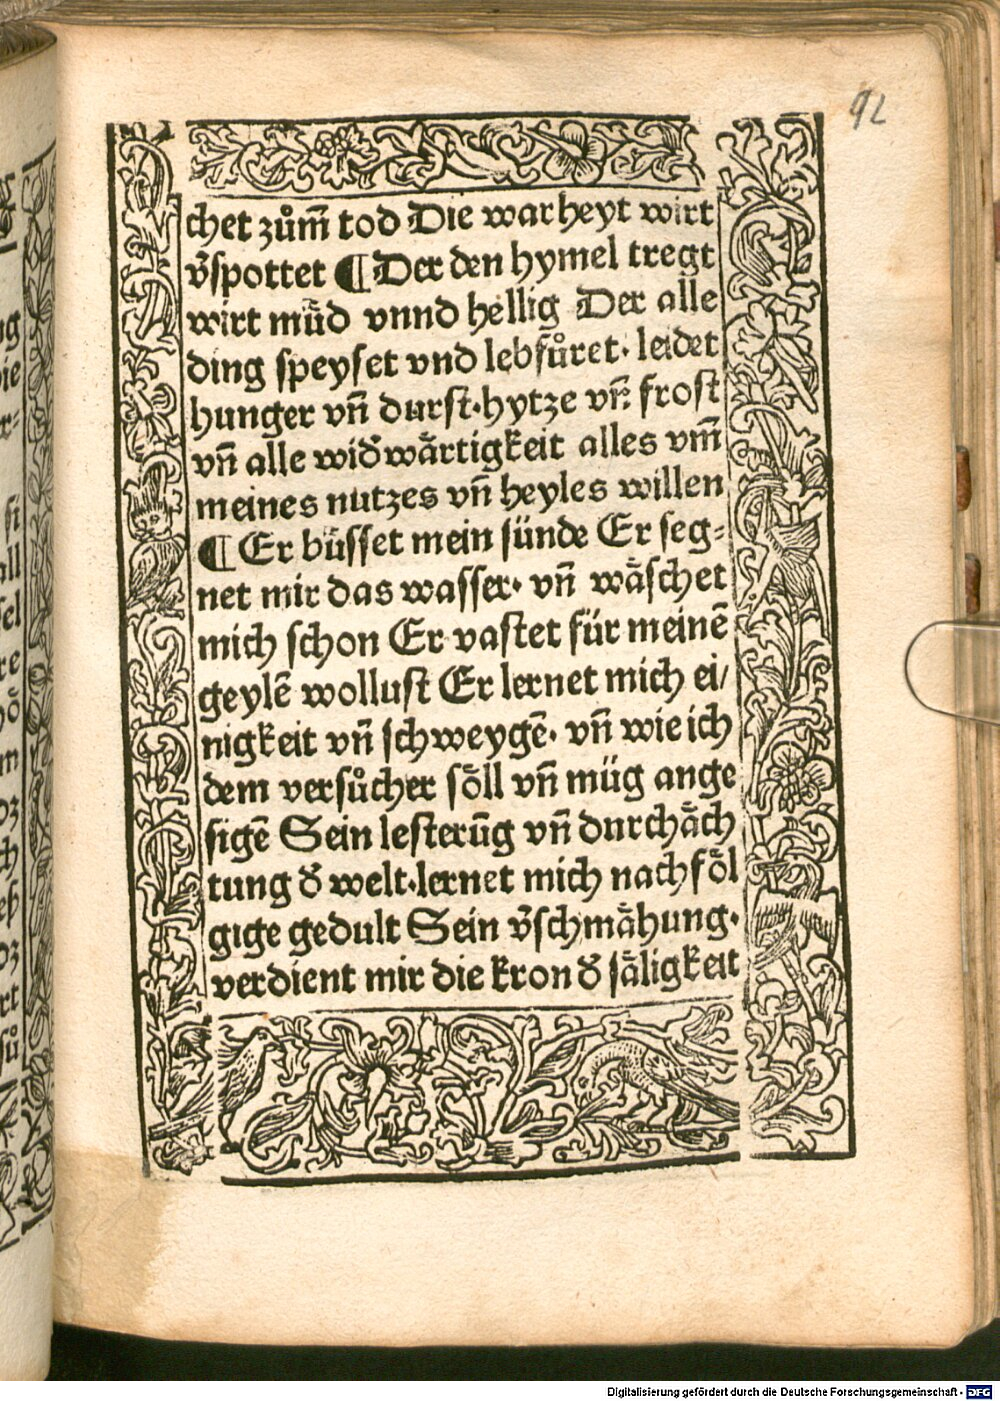 92
chet zům̄ tod Die warheyt wirt
v̓spottet ¶ Der den hymel tregt
wirt mu̎d vnnd hellig Der alle
ding speyset vnd lebfůret· leidet
hunger vn̄ durst·hytze vn̄: frost
vn̄ alle wid̓wa̎rtigkeit alles vm̄
meines nutzes vn̄ heyles willen
¶ Er büsset mein sünde Er seg⸗
net mir das wasser· vn̄ wa̎schet
mich schon Er vastet für meinē
geylē wollust Er lernet mich ei/
nigkeit vn̄ schweygē· vn̄ wie ich
dem versůcher so̎ll vn̄ müg ange
sigē Sein lesterūg vn̄ durcha̎ch
tung d̓ welt·lernet mich nachfo̎l
gige gedult Sein v̓schma̎hung·
verdient mir die kron d̓ sa̎ligkeit
Digitalisierung gefördert durch die Deutsche Forschungsgemeinschaft - DFG